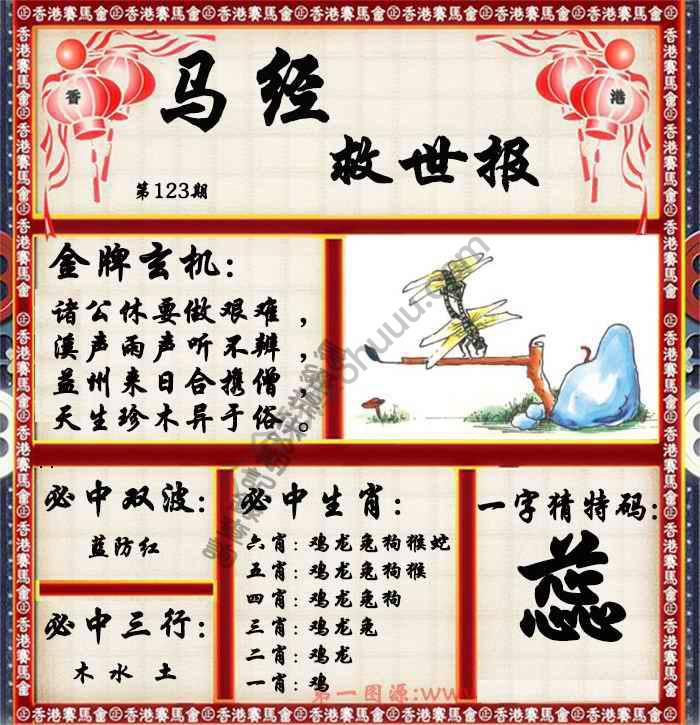 香港賽馬會
香 港
马经
救世报
第123期
金牌玄机:
诸公休要做艰难,
溪声雨声听不辨,
益州来日合携僧,
天生珍木异于俗。
必中双波:
蓝防红
必中三行:
木 水 土
必中生肖:
六肖:鸡龙兔狗猴蛇
五肖:鸡龙兔狗猴
四肖:鸡龙兔狗
三肖:鸡龙兔
二肖:鸡龙
一肖:鸡
一字猜特码:
蕊
第一图源:www